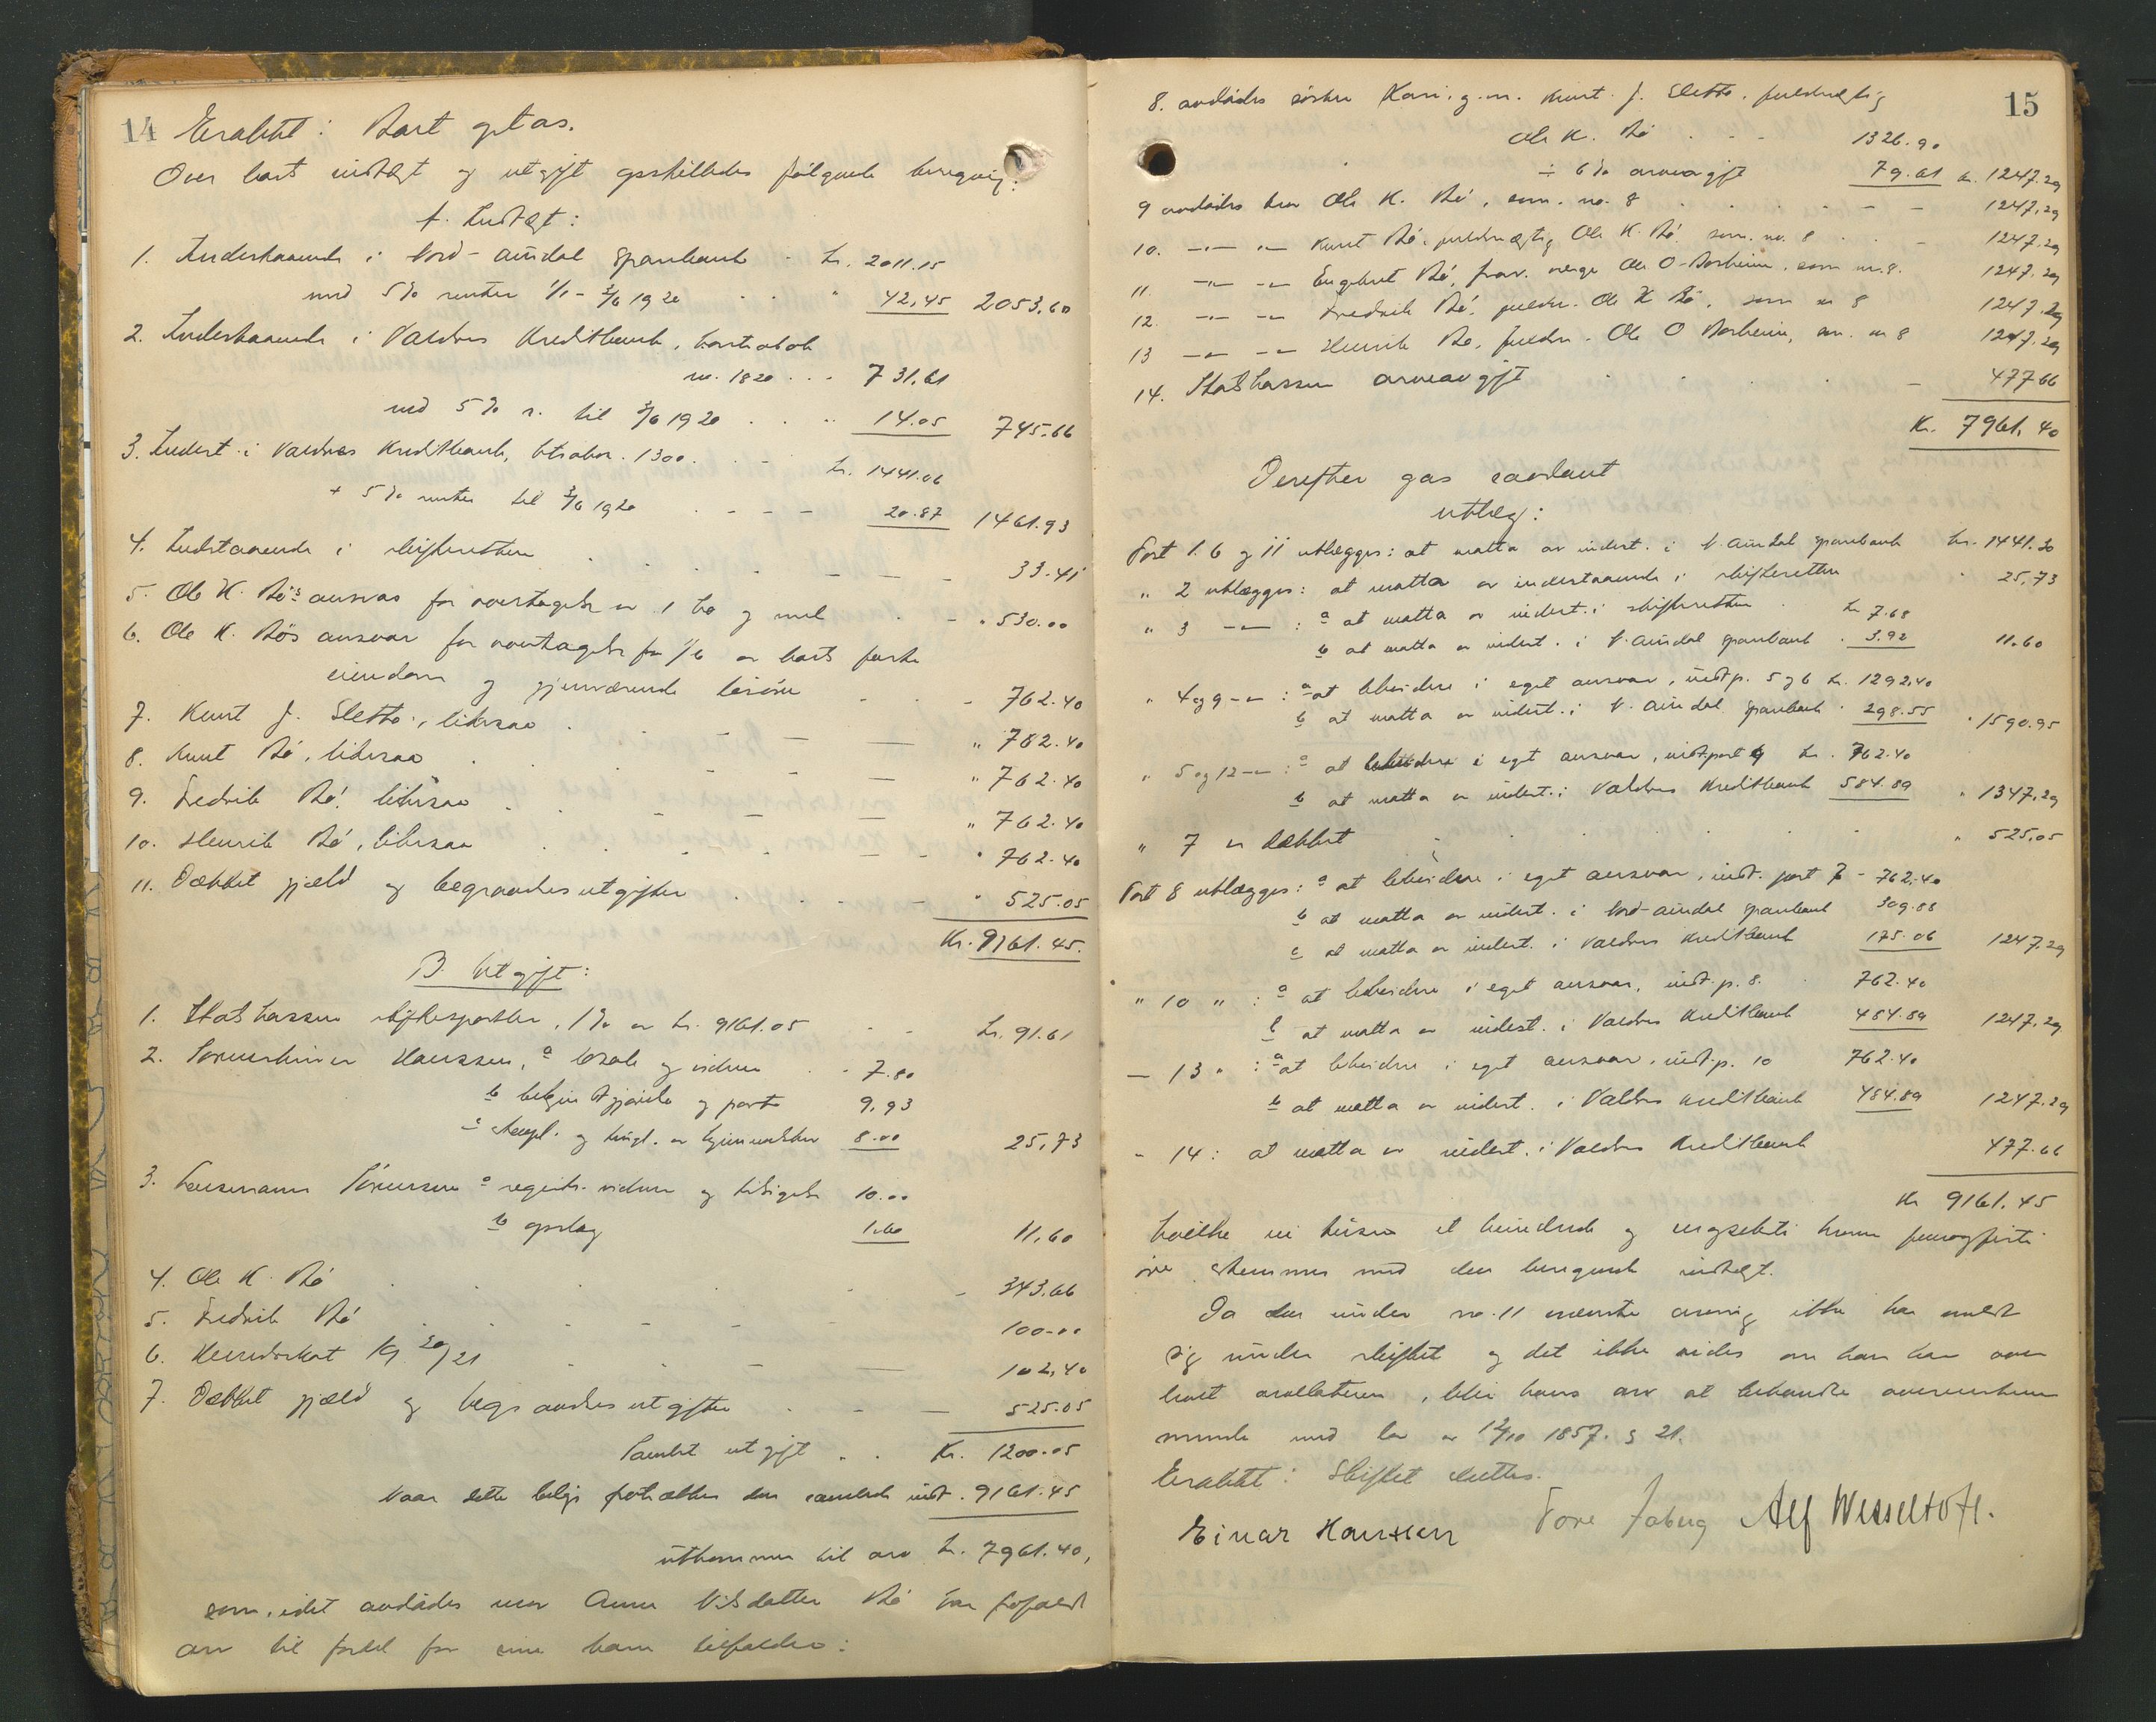 14
Eraktet: Bart gitas.
Over barts indtægt og utgift opstilledes følgende beregning:
A. Indtægt:
1. Indestaaende i Nord-Aurdal Sparebank - kr. 2011.15
med 5% renter 1/1 - 3/6 1920 . . " 42,45 2053,60
2. Indestaaende i Valdres Kreditbank, kontrabok
no. 1820 . . . 731.61
med 5% r. til 3/6 1920 . . " 14.05 745.66
3. Indest. i Valdres Kreditbank, ktrabok. 1300. . - kr. 1441.06
+ 5% renter til 3/6 1920 - - - - 20.87 1461.93
4. Indstaaende i skifteretten . . . . - - - 33.41
5. Ole K. Bø's ansvar for overtagelse av 1 ko og mel . - " 530.00
6. Ole K. Bøs ansvar for overtagelse for 1/6 av barts faste
eiendom og gjenværende løsøre - - - 762.40
7. Knut J. Sletto, likesaa . . - - - " 762.40
8. Knut Bø, likesaa . . . - - - " 762.40
9. Fredrik Bø, likesaa . . - - - " 762.40
10. Henrik Bø, likesaa . . . . - - " 762.40
11. Dækket gjæld og begravelsesutgifter . . - - " 525.05
Kr. 9161.45.
B. Utgift:
1. Statskassen skiftesportler, 1% av kr. 9161.05 - - kr. 91.61
2. Sorenskriver Hanssen, a
7.80
b og porto 9,93
c og tingl. av 8.00 25,73
3. Lensmann a registr. vidner og 10.00
b opslag 1.60 11,60
4. Ole K. Bø . . . - 343.66
5. Fredrik Bø . . - - - 100.00
6. Herredsskat 19 20/21 . . - - 102,40
7. Dækket gjæld og begravelsesutgifter . - - 525.05
Samlet utgift . . Kr. 1200.05
Naar dette beløp fratrækkes den samlede indt. 9161.45
utkommer til arv kr. 7961.40,
som, idet avdødes mor Anne Nilsdatter Bø har frafaldt
arv til fordel for sine barn tilfalder:
15
8. avdødes søster Kari, g.m. Knut J. Sletto, fuldmægtig
Ole K. Bø . - - 1326.90
÷ 6% arveavgift 79.61 kr. 1247.29
9 avdødes bror Ole K. Bø, som no. 8 . . . . - - 1247,29
10. -"- -"- Knut Bø, fuldmægtig Ole K. Bø som no. 8 . . - 1247.29
11. -"- -"- Engebret Bø, frav. verge Ole O. Børheim, som nr. 8. 1247.29
12. -"- -"- Fredrik Bø, fuldm. Ole K. Bø, som nr 8 1247.29
13 -"- -"- Henrik Bø, fuldm. Ole O Børheim, som nr 8 1247.29
14. Statskassen arveavgift . . . . - 477 66
Kr. 7961.40
Derefter gas saadant
utlæg:
Post 1. 6 og 11 utlægges: at motta av indest. i N. Aurdal Sparebank kr. 1441.30
" 2 utlægges: at motta av indestaaende i skifteretten . 25,73
" 3 -"- : a at motta av indest. i skifteretten . kr 7.68
b at motta av indest. i N. Aurdal Sparebank . 3.92 11.60
" 4 og 9 -"- : a at beholde i eget ansvar, indt.p. 5 og 6 kr. 1292.40
b at motta av indest. i N. Aurdal Sparebank . 298.55 " 1590.95
" 5 og 12 -"- : a at beholde i eget ansvar, indt.post 9 kr. 762.40
b at motta av indest. i Valdres Kreditbank 584.89 " 1347,29
" 7 er dækket . . . . . " 525.05
Post 8 utlægges: a at beholde i eget ansvar, indt. post 7 - 762,40
b at motta av indest. i Nord-Aurdal Sparebank 309.83
c at motta av indest. i Valdres Kreditbank 175.06 1247.29
" 10 " : a at beholde i eget ansvar, indt.p. 8. . 762.40
b at motta av indest. i Valdres Kreditbank 484.89 1247.29
- 13 " : a at beholde i eget ansvar, indt.p. 10 762.40
b at motta av indest. i Valdres Kreditbank 484.89 1247.29
- 14 : at motta av indest. i Valdres Kreditbank 477.66
Kr 9161.45
hvilke ni tusen et hundrede og en og seksti kroner fem og firti
øre stemmer med den beregnede indtægt.
Da den under no. 11 nævnte arving ikke har meldt
sig under skiftet og det ikke vides om han har over
levet arvelateren, blir hans arv at behandle overensstem
mende med lov av 12/10 1857. § 21.
Eraktet: Skiftet sluttes.
Einar Hanssen Tore Foberg Alf Wesseltoft.